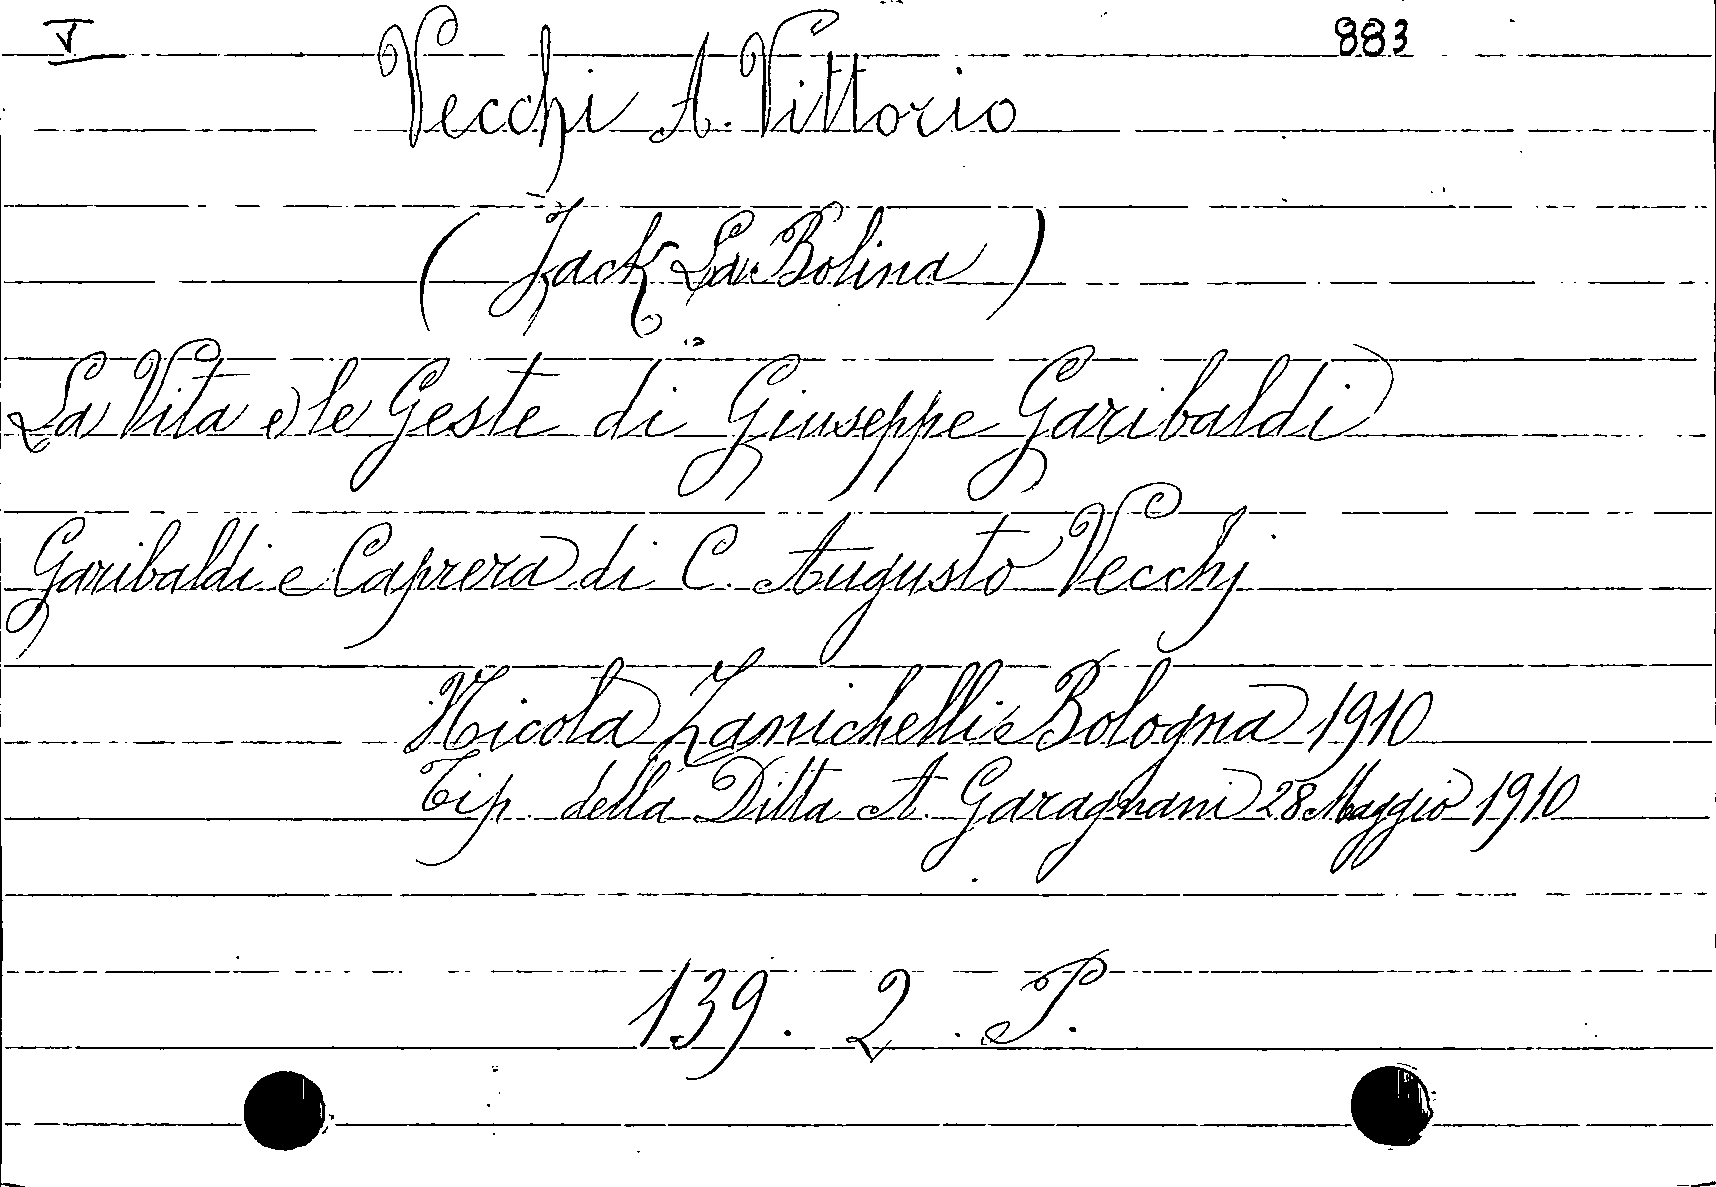 V 883
Vecchi A. Vittorio
( Jack La Bolina )
La Vita e le Geste di Giuseppe Garibaldi
Garibaldi e Caprera di C. Augusto Vecchj
Nicola Zanichelli Bologna 1910
Tip. della Ditta A. Garagnani 28 Maggio 1910
139. 2. P.